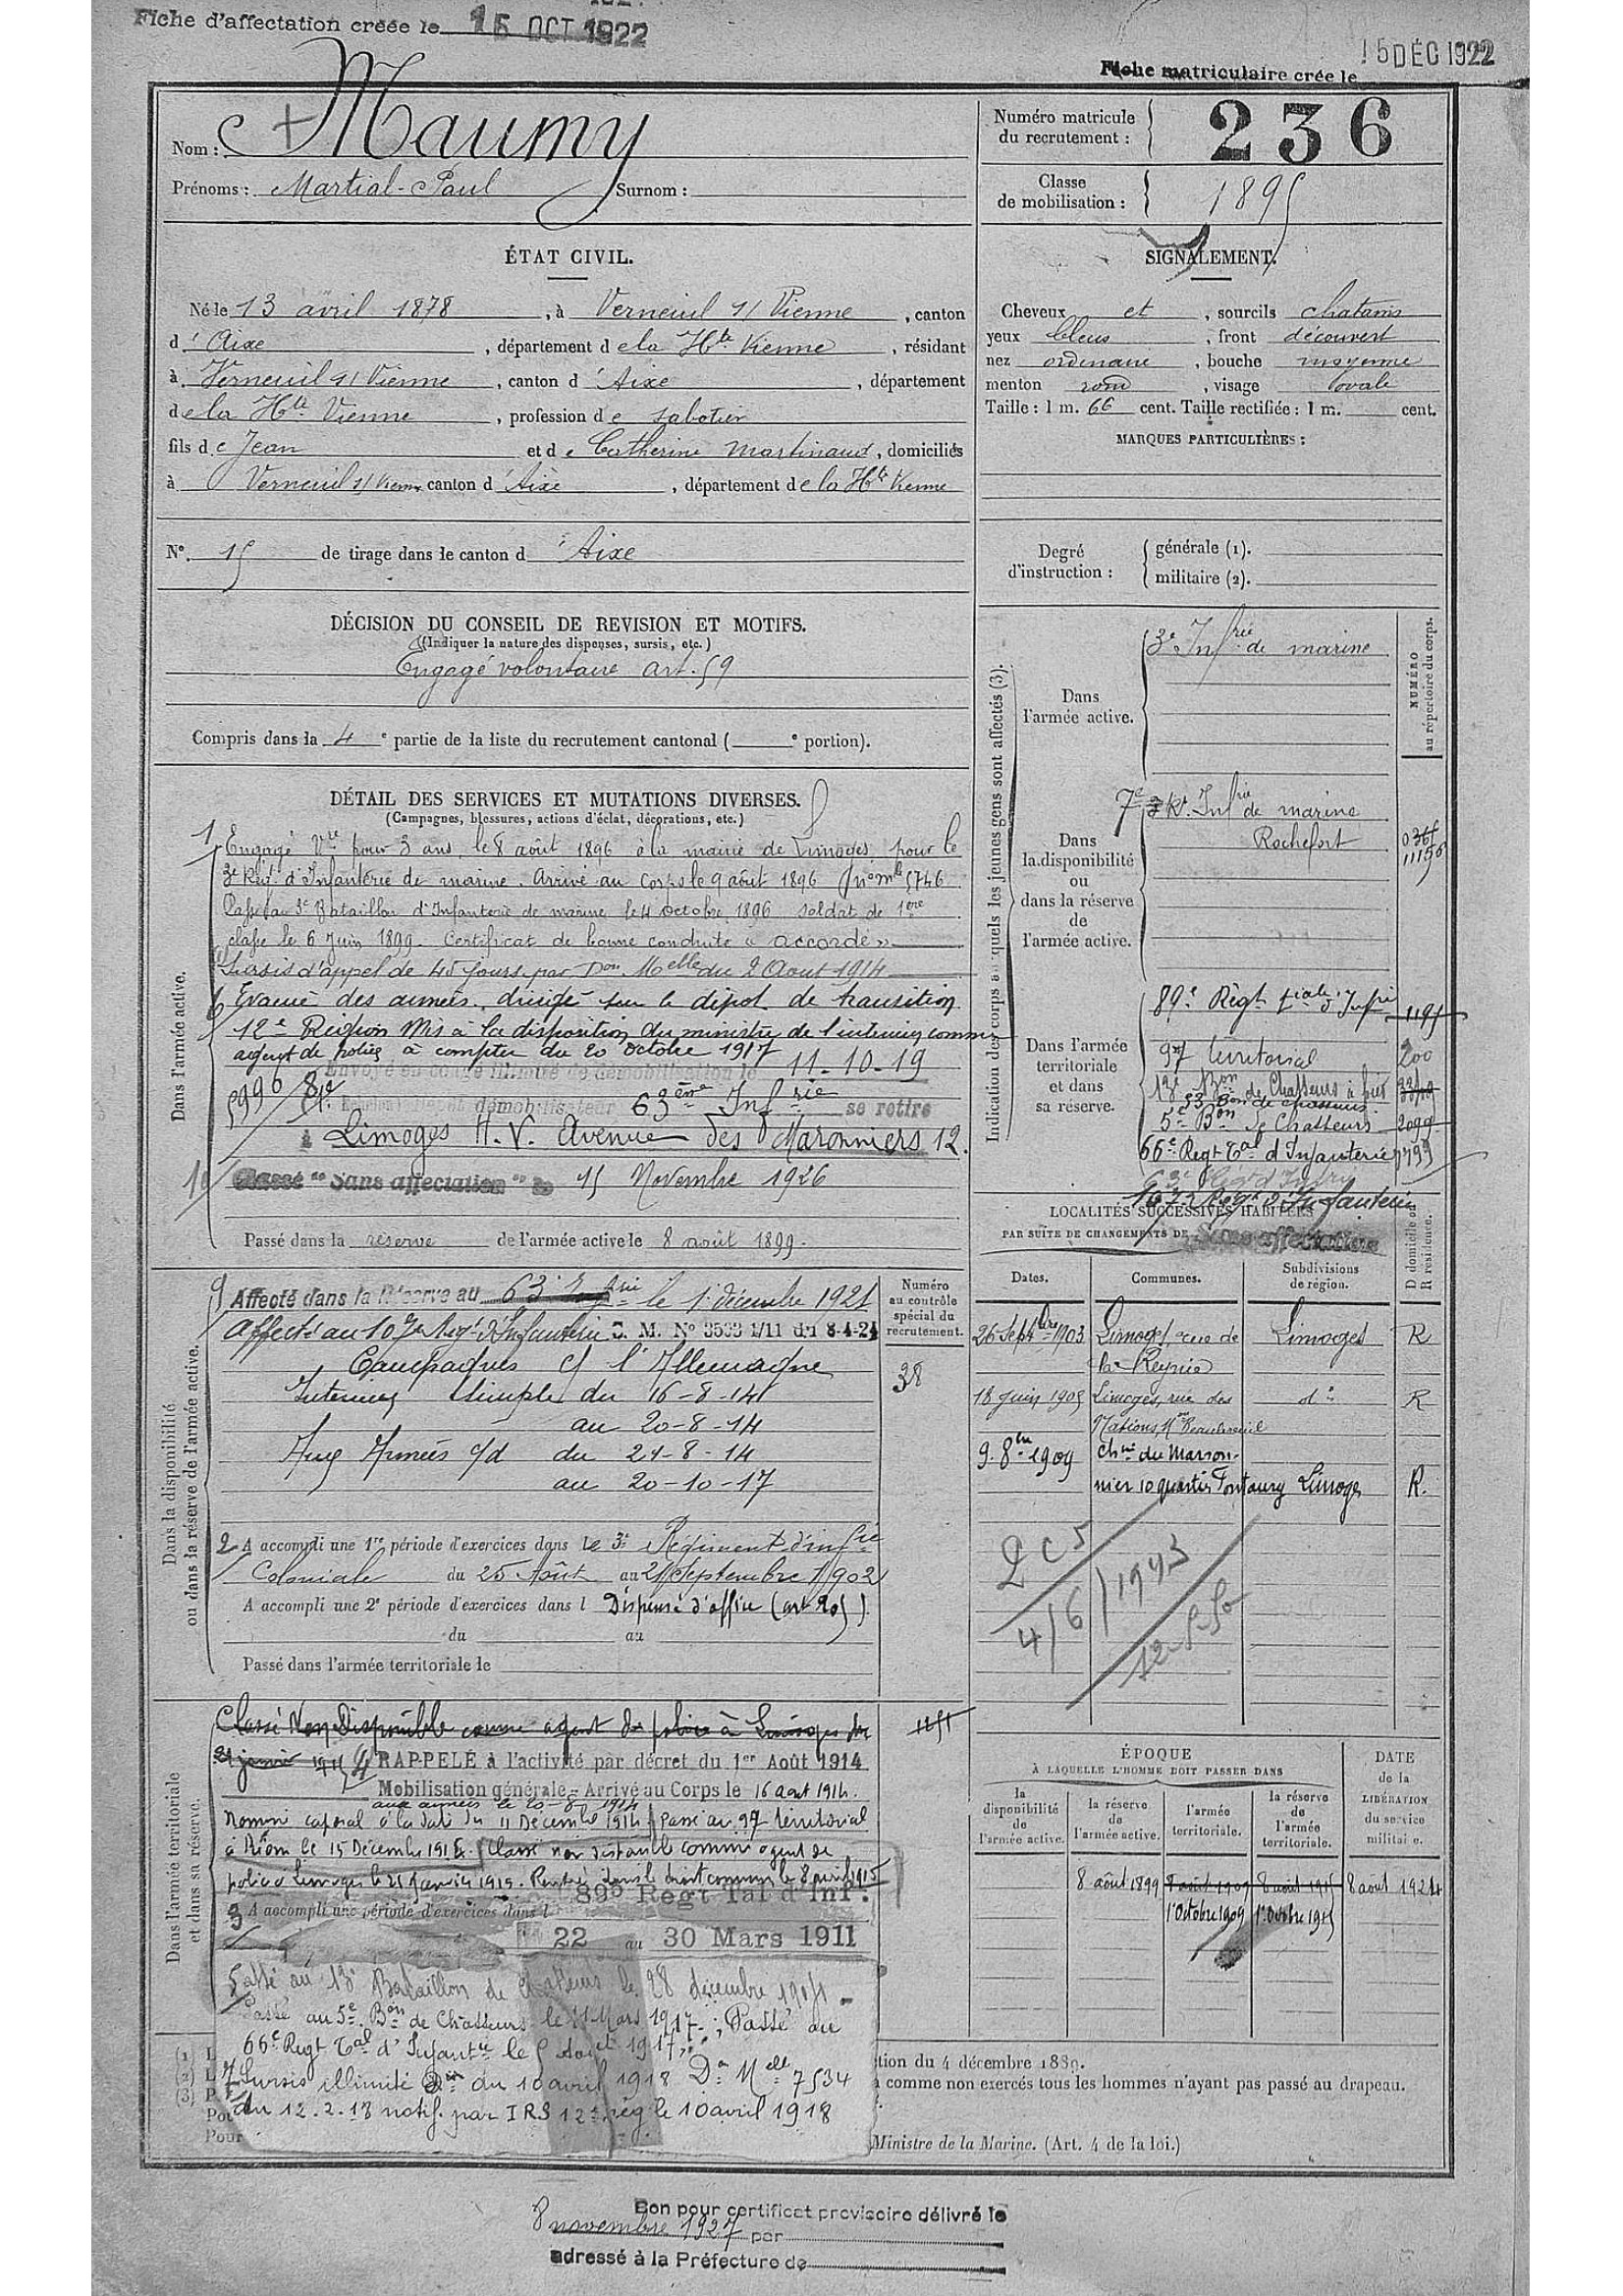 Fiche d'affectation créée le 16 OCT 1922
15 DÉC 1922
Fiche matriculaire crée le
Nom : Maumy
Prénoms : Martial-Paul Surnom :
Numéro matricule du recrutement : 236
Classe de mobilisation : 1895
ÉTAT CIVIL.
Né le 13 avril 1878, à Verneuil s/ Vienne, canton
d'Aixe, département de la Hte Vienne, résidant
à Verneuil s/ Vienne, canton d'Aixe, département
de la Hte Vienne, profession de sabotier
fils de Jean et de Catherine Martinaud, domiciliés
à Verneuil s/ Vienne canton d'Aixe, département de la Hte Vienne
N° 15 de tirage dans le canton d'Aixe
SIGNALEMENT.
Cheveux et, sourcils chatains
yeux bleus, front découvert
nez ordinaire, bouche moyenne
menton rond, visage ovale
Taille : 1 m. 66 cent. Taille rectifiée : 1 m. cent.
MARQUES PARTICULIÈRES :
Degré d'instruction : générale (1).
militaire (2).
DÉCISION DU CONSEIL DE REVISION ET MOTIFS.
(Indiquer la nature des dispenses, sursis, etc.)
Engagé volontaire art. 59
Compris dans la 4e partie de la liste du recrutement cantonal ( e portion).
DÉTAIL DES SERVICES ET MUTATIONS DIVERSES.
(Campagnes, blessures, actions d'éclat, décorations, etc.)
Dans l'armée active.
1 Engagé Vre pour 3 ans le 8 août 1896 à la mairie de Limoges pour le
3e Régt d'Infanterie de marine. Arrivé au Corps le 9 août 1896 nº mle 5746
Passé au 3e Bataillon d'Infanterie de marine le 4 octobre 1896 soldat de 1ère
classe le 6 Juin 1899. Certificat de bonne conduite « accordé »
Sursis d'appel de 45 jours par Don Melle du 2 Aout 1914
6 Evacué des armées. dirigé sur le dépot de transition
12e Région Mis à la disposition du ministre de l'intérieur comme
agent de police à compter du 20 octobre 1917
Envoyé en congé illimité de démobilisation le 11-10-19
5996 8 démobilisateur 63ème Infrie se retire
à Limoges H.V. Avenue des Maronniers 12.
10 Classé "Sans affectation" le 15 Novembre 1926
Passé dans la réserve de l'armée active le 8 août 1899.
Indication des corps auxquels les jeunes gens sont affectés (3).
NUMÉRO au répertoire du corps.
Dans l'armée active.
3e Infrie de marine
Dans la disponibilité ou dans la réserve de l'armée active.
7e Rt Infrie de marine
Rochefort
11156
Dans l'armée territoriale et dans sa réserve.
89e Régt tial d'Infrie 1195
97 territorial 200
13e Bon de Chasseurs à pied
53 Bon de chasseurs
5e Bon de Chasseurs 2099
66e Regt Tal d'Infanterie 1799
63e Régt d'Infrie
107e Régt d'Infanterie
Sans affectation
LOCALITÉS SUCCESSIVES HABITÉES
PAR SUITE DE CHANGEMENTS DE
D domicile ou R résidence.
Dates. Communes. Subdivisions de région.
26 Septbre 1903 Limoges, rue de la Reynie Limoges R
18 juin 1905 Limoges, rue des Nations, Mon Beaubreuil do R
9. 8bre 1909 Chin du Marronnier 10 quartier Fontaury Limoges R.
4/6/1943
Dans la disponibilité ou dans la réserve de l'armée active.
Numéro au contrôle spécial du recrutement.
38
9 Affecté dans la Réserve au 63e Infrie le 1er décembre 1921
Affecté au 107e Régt d'Infanterie C. M. N° 3503 1/11 du 8-4-24
Campagnes c/ l'Allemagne
Intérieur simple du 16-8-14
au 20-8-14
Aux Armées c/d du 21-8-14
au 20-10-17
2 A accompli une 1re période d'exercices dans le 3e Régiment d'infie
Coloniale du 25 Août au 21 Septembre 1902
A accompli une 2e période d'exercices dans l Dispensé d'office (art 205)
du au
Passé dans l'armée territoriale le
Dans l'armée territoriale et dans sa réserve.
Classé Non Disponible comme agent de police à Limoges du
21 janvier 1915
4 RAPPELÉ à l'activité par décret du 1er Août 1914
Mobilisation générale - Arrivé au Corps le 16 aout 1914.
aux armées le 20-8-1914
Nommé caporal à la date du 11 Décembre 1914 Passé au 97 territorial
à Riom le 15 Décembre 1914. Classé non disponible comme agent de
police à Limoges le 21 Janvier 1915. Rentré dans le droit commun le 8 avril 1915
89e Regt Tal d'Inf.
3 A accompli une période d'exercices dans l
22 au 30 Mars 1911
5 Passé au 13e Bataillon de Chasseurs le 28 décembre 1915
Passé au 5e Bon de Chasseurs le 11 Mars 1917. Passé au
66e Regt Tal d'Infantie le 5 Aout 1917.
7 Sursis illimité du 10 avril 1918 Dn Melle 7534
du 12.2.18 notif. par IRS 12e rég le 10 avril 1918
ÉPOQUE
À LAQUELLE L'HOMME DOIT PASSER DANS
la disponibilité de l'armée active. la réserve de l'armée active. l'armée territoriale. la réserve de l'armée territoriale.
DATE de la LIBÉRATION du service militaire.
8 août 1899 8 août 1909 8 août 1915 8 août 1921
1er Octobre 1909 1er Octobre 1915
tion du 4 décembre 1889.
comme non exercés tous les hommes n'ayant pas passé au drapeau.
Ministre de la Marine. (Art. 4 de la loi.)
Bon pour certificat provisoire délivré le
8 novembre 1927 par
adressé à la Préfecture de